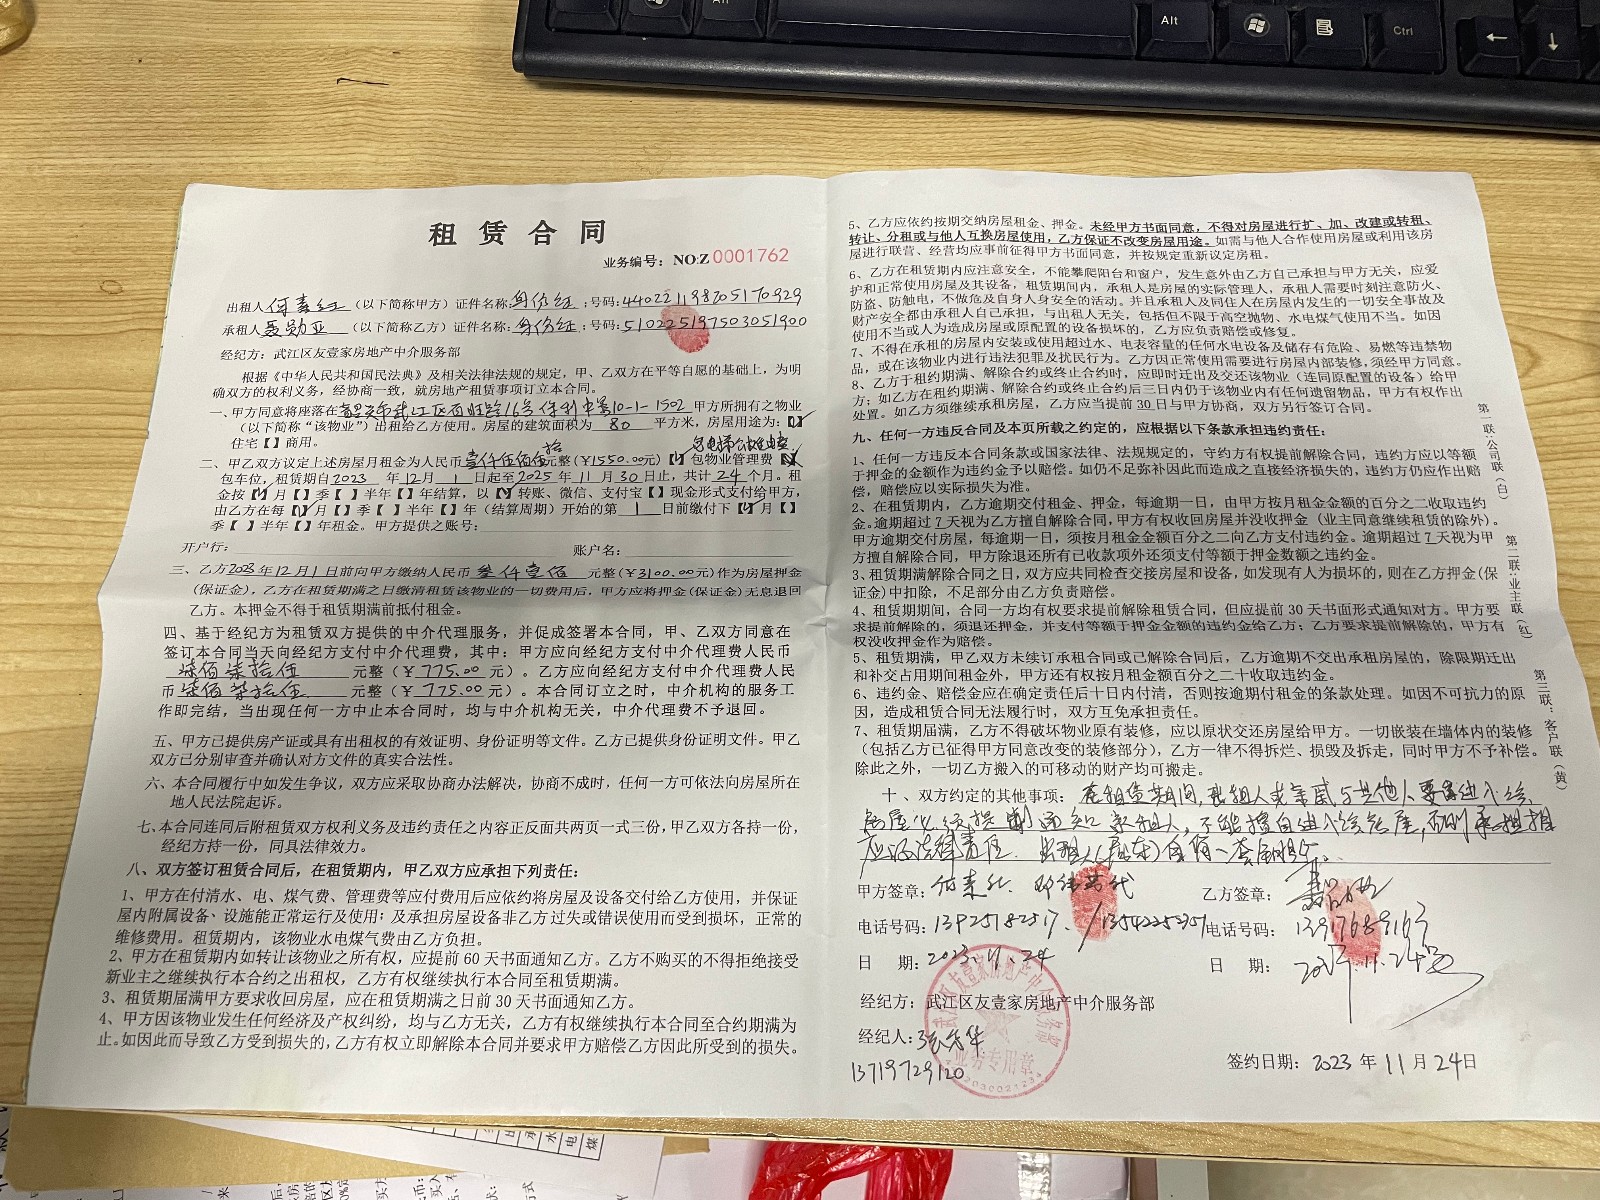 Alt
Ctrl
租赁合同
业务编号：NO:Z 0001762
出租人何嘉红（以下简称甲方）证件名称:身份证；号码:440221198205170929
承租人聂勋亚（以下简称乙方）证件名称:身份证；号码:510225197503051900
经纪方：武江区友壹家房地产中介服务部
根据《中华人民共和国民法典》及相关法律法规的规定，甲、乙双方在平等自愿的基础上，为明
确双方的权利义务，经协商一致，就房地产租赁事项订立本合同。
一、甲方同意将座落在韶关市武江区百旺路16号保利中景10-1-1502甲方所拥有之物业
（以下简称“该物业”）出租给乙方使用。房屋的建筑面积为80平方米，房屋用途为：【√】
住宅【】商用。
二、甲乙双方议定上述房屋月租金为人民币壹仟伍佰伍拾元整（￥1550.00元）【√】包物业管理费【
包车位，租赁期自2023年12月1日起至2025年11月30日止，共计24个月。租
金按【√】月【】季【】半年【】年结算，以【√】转账、微信、支付宝【】现金形式支付给甲方，
由乙方在每【√】月【】季【】半年【】年（结算周期）开始的第1日前缴付下【√】月【】
季【】半年【】年租金。甲方提供之账号：
开户行：　账户名：
三、乙方2023年12月1日前向甲方缴纳人民币叁仟壹佰元整（￥3100.00元）作为房屋押金
（保证金），乙方在租赁期满之日缴清租赁该物业的一切费用后，甲方应将押金（保证金）无息退回
乙方。本押金不得于租赁期满前抵付租金。
四、基于经纪方为租赁双方提供的中介代理服务，并促成签署本合同，甲、乙双方同意在
签订本合同当天向经纪方支付中介代理费，其中：甲方应向经纪方支付中介代理费人民币
柒佰柒拾伍元整（￥775.00元）。乙方应向经纪方支付中介代理费人民
币柒佰柒拾伍元整（￥775.00元）。本合同订立之时，中介机构的服务工
作即完结，当出现任何一方中止本合同时，均与中介机构无关，中介代理费不予退回。
五、甲方已提供房产证或具有出租权的有效证明、身份证明等文件。乙方已提供身份证明文件。甲乙
双方已分别审查并确认对方文件的真实合法性。
六、本合同履行中如发生争议，双方应采取协商办法解决，协商不成时，任何一方可依法向房屋所在
地人民法院起诉。
七、本合同连同后附租赁双方权利义务及违约责任之内容正反面共两页一式三份，甲乙双方各持一份，
经纪方持一份，同具法律效力。
八、双方签订租赁合同后，在租赁期内，甲乙双方应承担下列责任：
1、甲方在付清水、电、煤气费、管理费等应付费用后应依约将房屋及设备交付给乙方使用，并保证
屋内附属设备、设施能正常运行及使用；及承担房屋设备非乙方过失或错误使用而受到损坏，正常的
维修费用。租赁期内，该物业水电煤气费由乙方负担。
2、甲方在租赁期内如转让该物业之所有权，应提前60天书面通知乙方。乙方不购买的不得拒绝接受
新业主之继续执行本合约之出租权，乙方有权继续执行本合同至租赁期满。
3、租赁期届满甲方要求收回房屋，应在租赁期满之日前30天书面通知乙方。
4、甲方因该物业发生任何经济及产权纠纷，均与乙方无关，乙方有权继续执行本合同至合约期满为
止。如因此而导致乙方受到损失的，乙方有权立即解除本合同并要求甲方赔偿乙方因此所受到的损失。
5、乙方应依约按期交纳房屋租金、押金。未经甲方书面同意，不得对房屋进行扩、加、改建或转租、
转让、分租或与他人互换房屋使用，乙方保证不改变房屋用途。如需与他人合作使用房屋或利用该房
屋进行联营、经营均应事前征得甲方书面同意，并按规定重新议定房租。
6、乙方在租赁期内应注意安全，不能攀爬阳台和窗户，发生意外由乙方自己承担与甲方无关，应爱
护和正常使用房屋及其设备，租赁期间内，承租人是房屋的实际管理人，承租人需要时刻注意防火、
防盗、防触电，不做危及自身人身安全的活动。并且承租人及同住人在房屋内发生的一切安全事故及
财产安全都由承租人自己承担，与出租人无关，包括但不限于高空抛物、水电煤气使用不当。如因
使用不当或人为造成房屋或原配置的设备损坏的，乙方应负责赔偿或修复。
7、不得在承租的房屋内安装或使用超过水、电表容量的任何水电设备及储存有危险、易燃等违禁物
品，或在该物业内进行违法犯罪及扰民行为。乙方因正常使用需要进行房屋内部装修，须经甲方同意。
8、乙方于租约期满、解除合约或终止合约时，应即时迁出及交还该物业（连同原配置的设备）给甲
方；如乙方在租约期满、解除合约或终止合约后三日内仍于该物业内有任何遗留物品，甲方有权作出
处置。如乙方须继续承租房屋，乙方应当提前30日与甲方协商，双方另行签订合同。
九、任何一方违反合同及本页所载之约定的，应根据以下条款承担违约责任：
1、任何一方违反本合同条款或国家法律、法规规定的，守约方有权提前解除合同，违约方应以等额
于押金的金额作为违约金予以赔偿。如仍不足弥补因此而造成之直接经济损失的，违约方仍应作出赔
偿，赔偿应以实际损失为准。
2、在租赁期内，乙方逾期交付租金、押金，每逾期一日，由甲方按月租金金额的百分之二收取违约
金。逾期超过7天视为乙方擅自解除合同，甲方有权收回房屋并没收押金（业主同意继续租赁的除外）。
甲方逾期交付房屋，每逾期一日，须按月租金金额百分之二向乙方支付违约金。逾期超过7天视为甲
方擅自解除合同，甲方除退还所有已收款项外还须支付等额于押金数额之违约金。
3、租赁期满解除合同之日，双方应共同检查交接房屋和设备，如发现有人为损坏的，则在乙方押金（保
证金）中扣除，不足部分由乙方负责赔偿。
4、租赁期期间，合同一方均有权要求提前解除租赁合同，但应提前30天书面形式通知对方。甲方要
求提前解除的，须退还押金，并支付等额于押金金额的违约金给乙方；乙方要求提前解除的，甲方有
权没收押金作为赔偿。
5、租赁期满，甲乙双方未续订承租合同或已解除合同后，乙方逾期不交出承租房屋的，除限期迁出
和补交占用期间租金外，甲方还有权按月租金额百分之二十收取违约金。
6、违约金、赔偿金应在确定责任后十日内付清，否则按逾期付租金的条款处理。如因不可抗力的原
因，造成租赁合同无法履行时，双方互免承担责任。
7、租赁期届满，乙方不得破坏物业原有装修，应以原状交还房屋给甲方。一切嵌装在墙体内的装修
（包括乙方已征得甲方同意改变的装修部分），乙方一律不得拆烂、损毁及拆走，同时甲方不予补偿。
除此之外，一切乙方搬入的可移动的财产均可搬走。
十、双方约定的其他事项：在租赁期间，出租人或亲戚与其他人要进入
房屋必须提前通知承租人，不能擅自进入房屋，否则承担相
应法律责任。出租人（房东）自留一套钥匙。
甲方签章：何嘉红
电话号码：13925182517、/13542253351
日　期：2023.11.24
乙方签章：聂勋亚
电话号码：13917689163
日　期：2023.11.24
经纪方：武江区友壹家房地产中介服务部
经纪人：
13719729120
签约日期：2023年11月24日
武江区友壹家房地产中介服务部
业务专用章
第一联：公司联（白）
第二联：业主联（红）
第三联：客户联（黄）